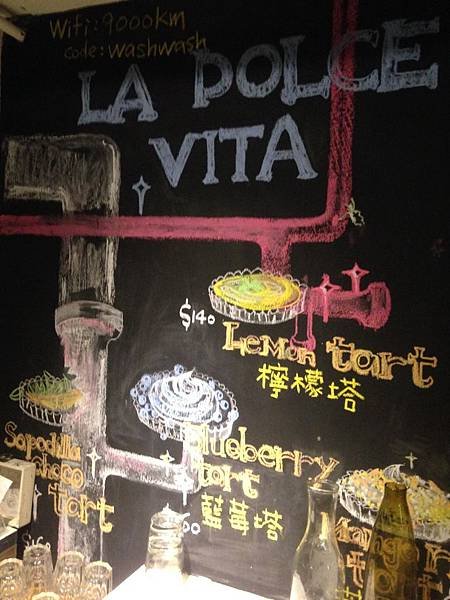 Wifi: 9000km
Code: washwash
LA DOLCE
VITA
$140
Lemon tart
檸檬塔
Blueberry
tart
藍莓塔
Sapodilla
choco
tart